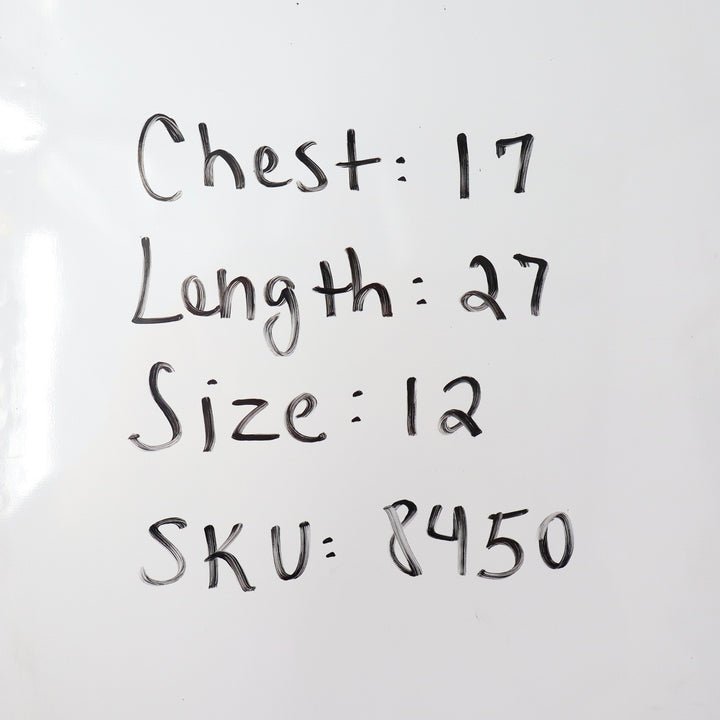 Chest: 17
Length: 27
Size: 12
SKU: 8450